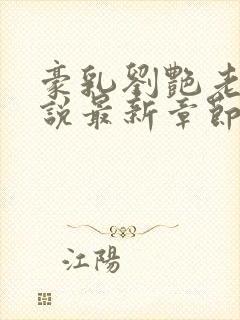 豪乳劉艷老
說最新章節
江陽